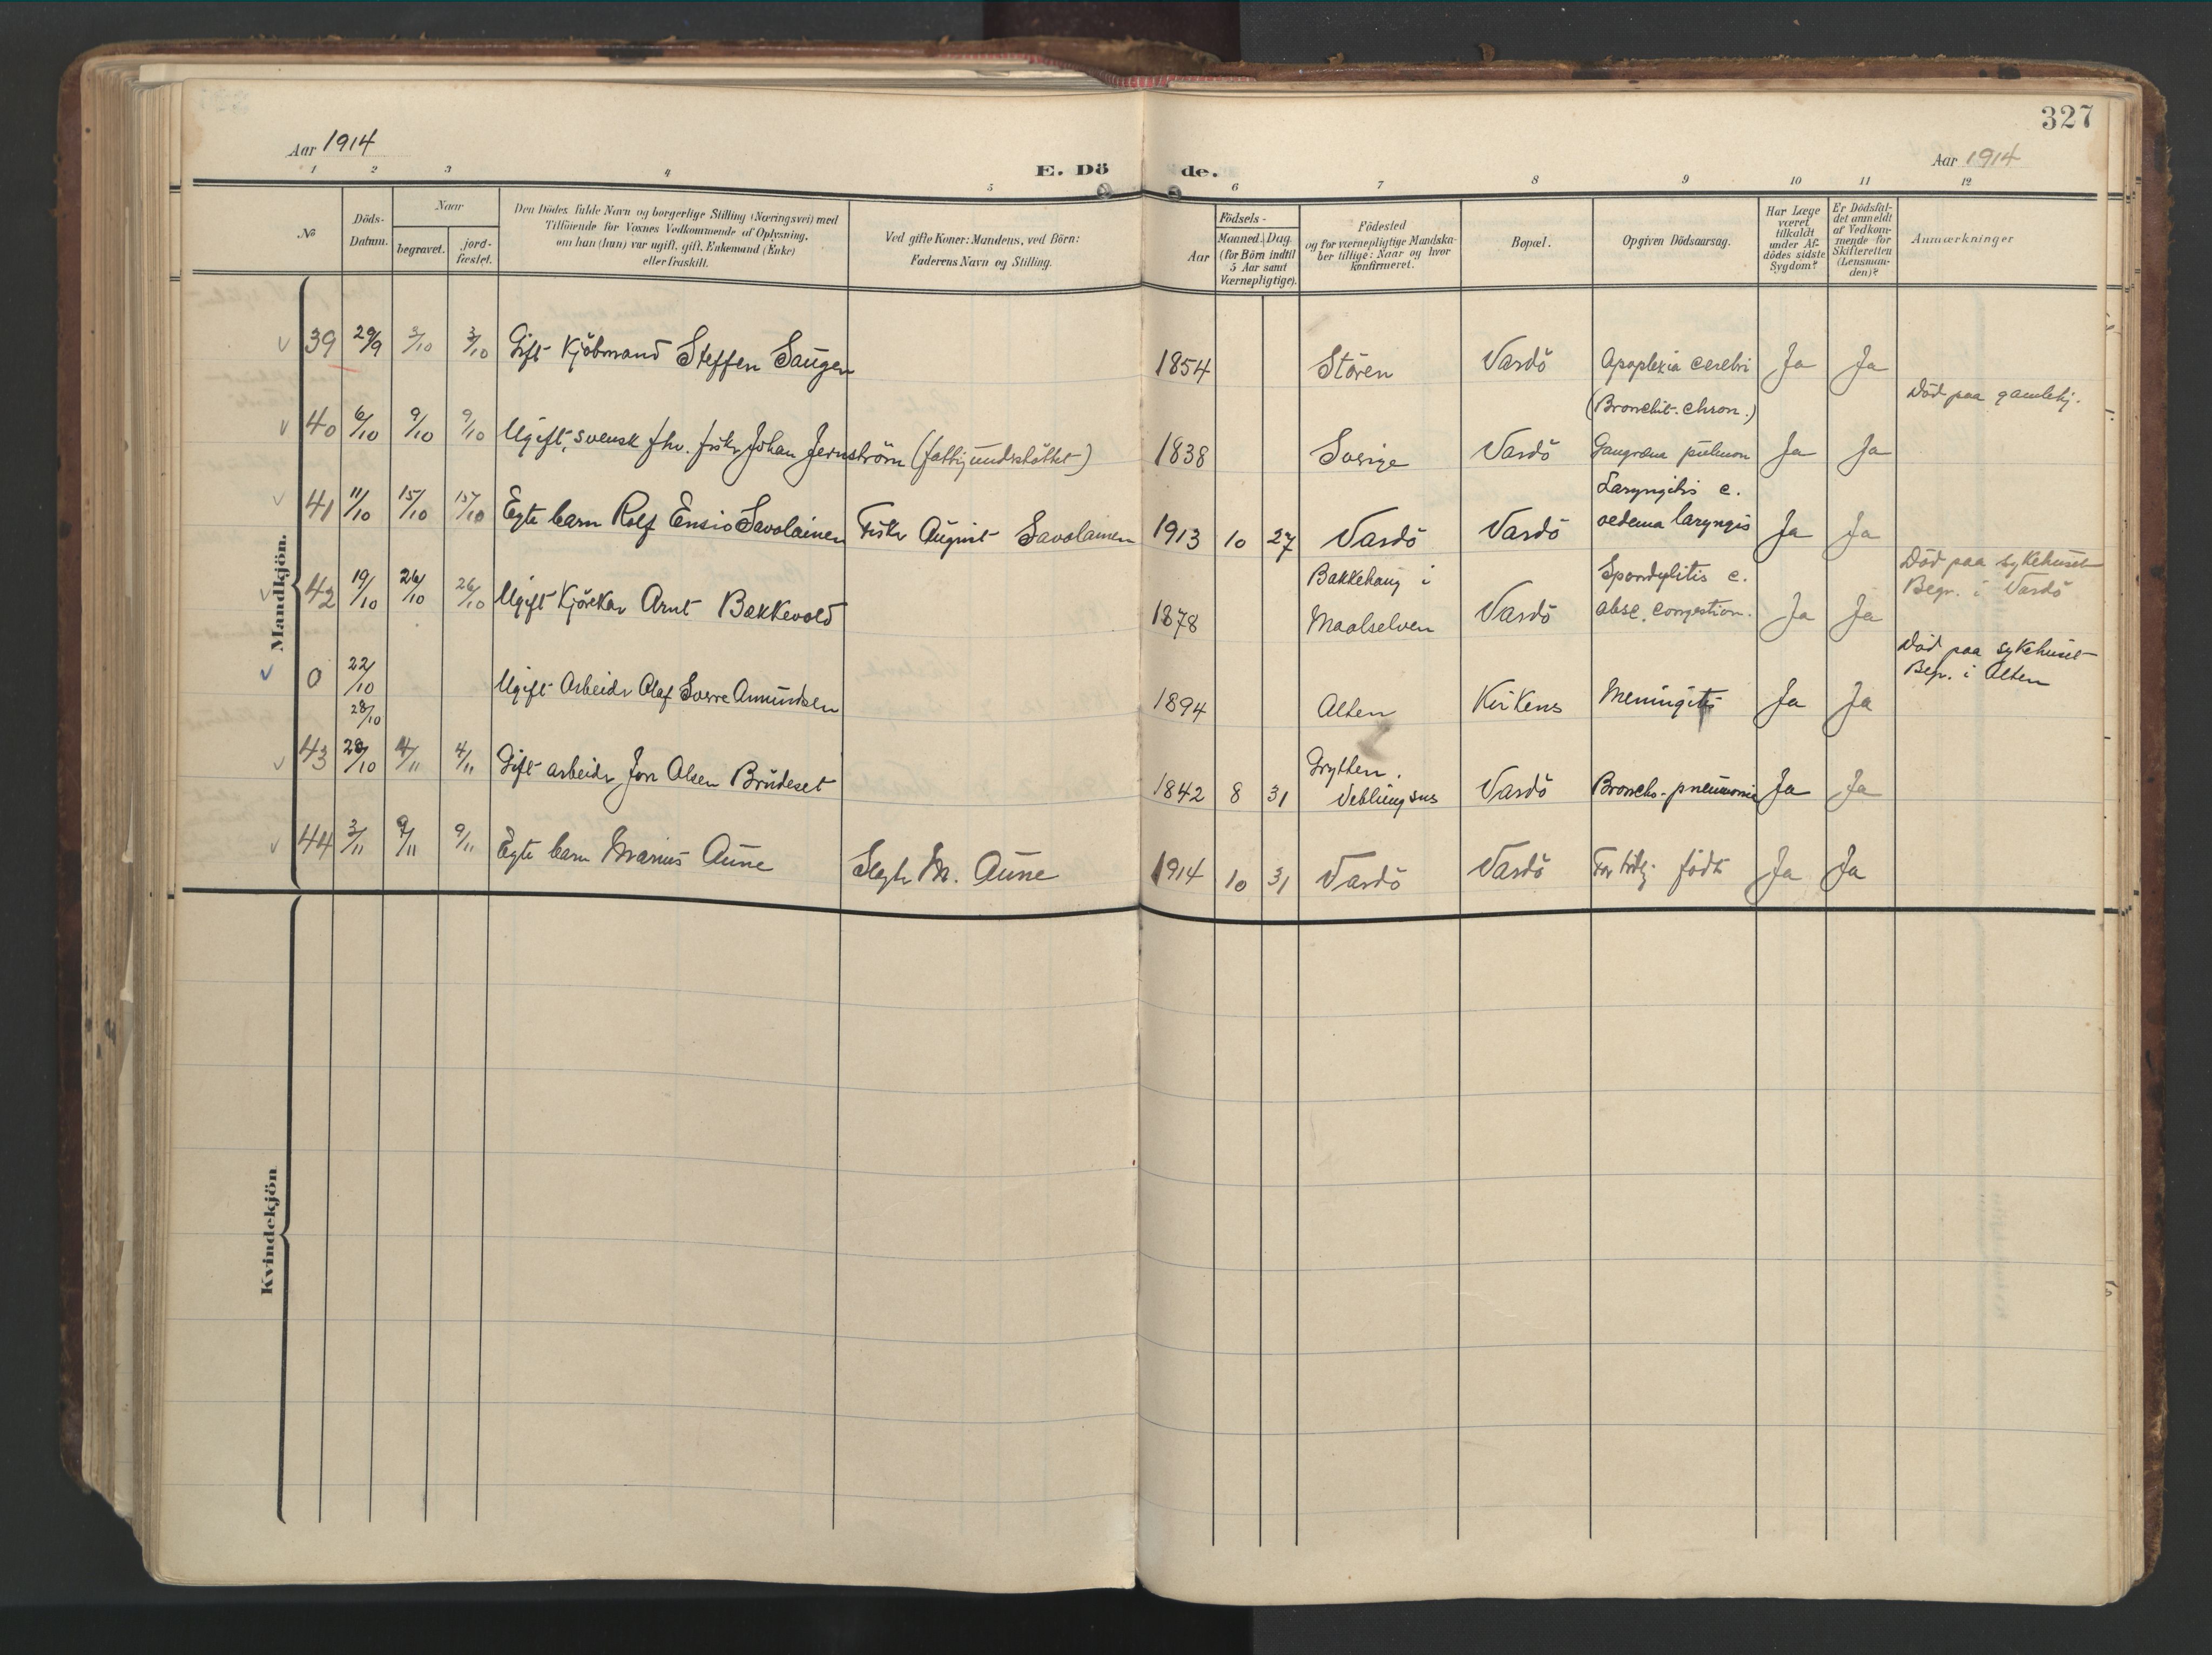 327
Aar 1914
Aar 1914
E. Dö de.
1 2 3 4 5 6 7 8 9 10 11 12
No
Döds-
Datum.
Naar
begravet.
jord-
fæstet.
Den Dödes fulde Navn og borgerlige Stilling (Næringsvei) med
Tilföiende for Voxnes Vedkommende af Oplysning,
om han (hun) var ugift, gift, Enkemand (Enke)
eller fraskilt.
Ved gifte Koner: Mandens, ved Börn:
Faderens Navn og Stilling.
Födsels-
Aar
Maaned. Dag.
(for Börn indtil
5 Aar samt
Værnepligtige).
Födested
og for værnepligtige Mandska-
ber tillige: Naar og hvor
konfirmeret.
Bopæl.
Opgiven Dödsaarsag.
Har Læge
været
tilkaldt
under Af-
dödes sidste
Sygdom?
Er Dödsfal-
det anmeldt
af Vedkom-
mende for
Skifteretten
(Lensman-
den)?
Anmærkninger
Mandkjön.
39 29/9 3/10 3/10 Gift Kjöbmand Steffen Saugen 1854 Stören Vardö Apoplexia cerebri Ja Ja
(Bronchit. chron.)
Död paa gamlehj.
40 6/10 9/10 9/10 Ugift, svensk fhv. fisker Johan Jernström (fattigunderstöttet) 1838 Sverige Vardö Gangræna pulmon Ja Ja
Laryngitis c.
41 11/10 15/10 15/10 Egte barn Rolf Ensio Savolainen Fisker August Savolainen 1913 10 27 Vardö Vardö oedema laryngis Ja Ja
Bakkehaug i
Spondylitis c.
Död paa sykehuset
Begr. i Vardö
42 19/10 26/10 26/10 Ugift Kjörekar Arnt Bakkevold 1878 Maalselven Vardö absc. congestion. Ja Ja
Död paa sykehuset
Begr. i Alten
0 22/10 Ugift Arbeider Olaf Sverre Amundsen 1894 Alten Kirkens Meningitis Ja Ja
28/10
Grytten.
43 28/10 4/11 4/11 Gift arbeider Jon Olsen Brudeset 1842 8 31 Veblungsnes Vardö Broncho-pneumonie Ja Ja
44 3/11 9/11 9/11 Egte barn Marius Aune Slagter M. Aune 1914 10 31 Vardö Vardö For tidlig födt Ja Ja
Kvindekjön